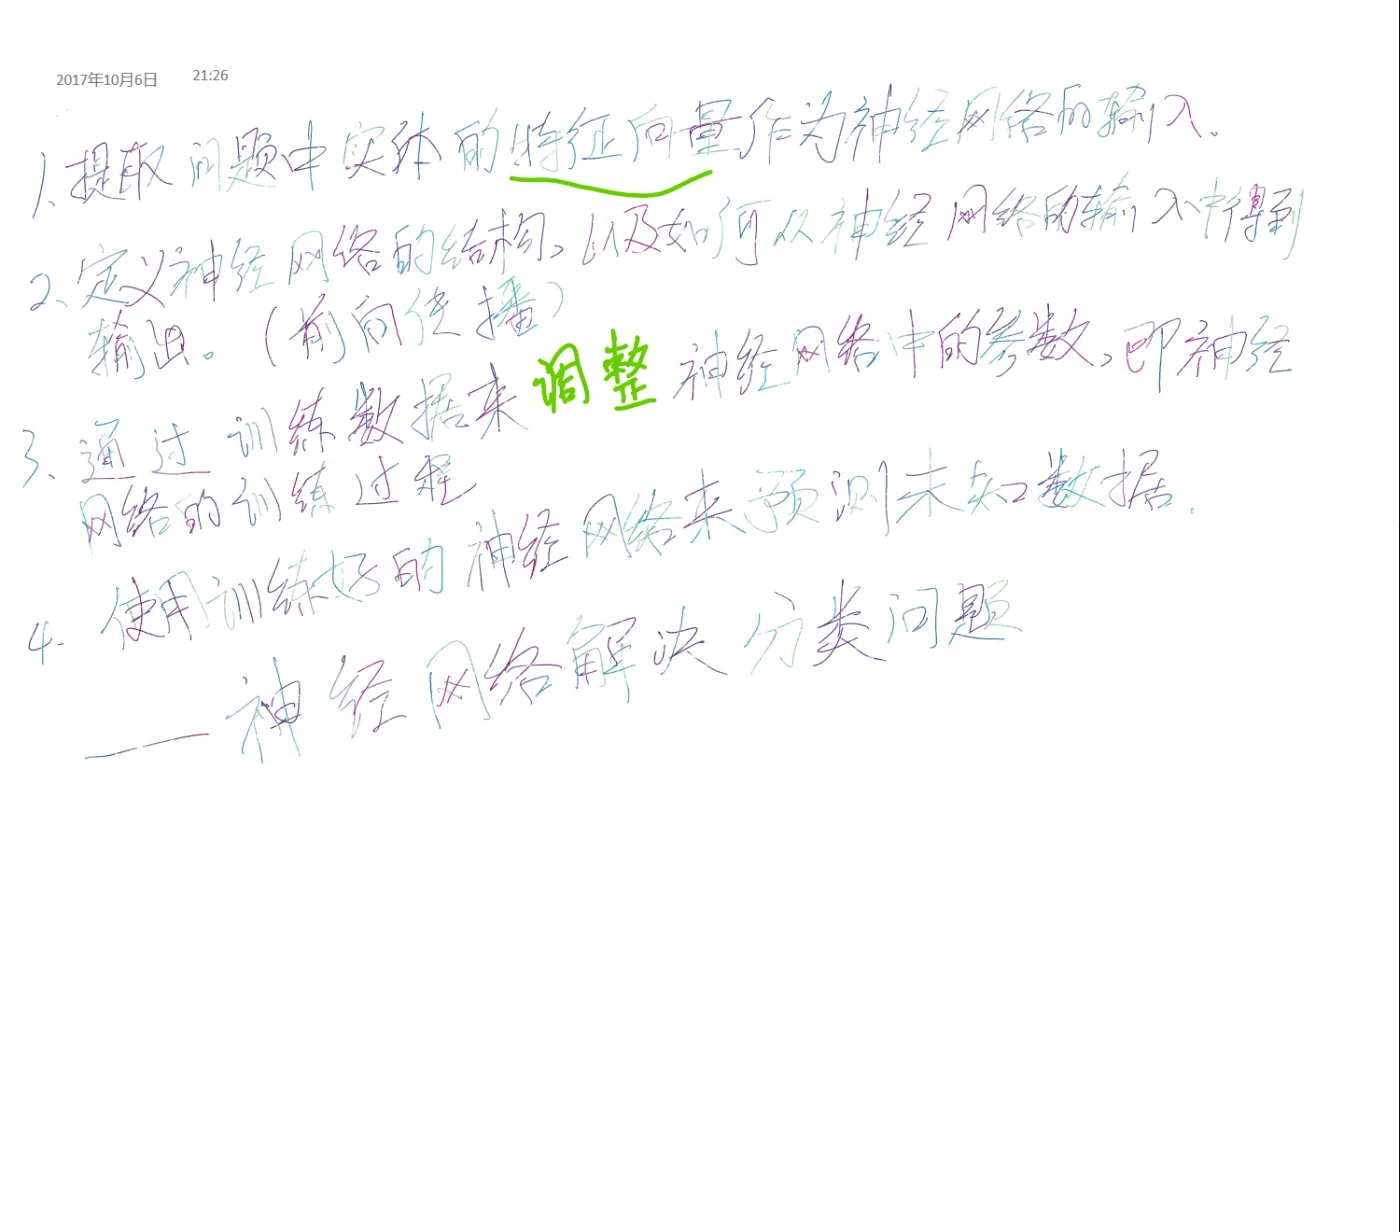 2017年10月6日 21:26
1、提取问题中实体的特征向量作为神经网络的输入。
2、定义神经网络的结构,以及如何从神经网络的输入中得到
输出。(前向传播)
3、通过训练数据来调整神经网络中的参数,即神经
网络的训练过程
4. 使用训练好的神经网络来预测未知数据.
——神经网络解决分类问题